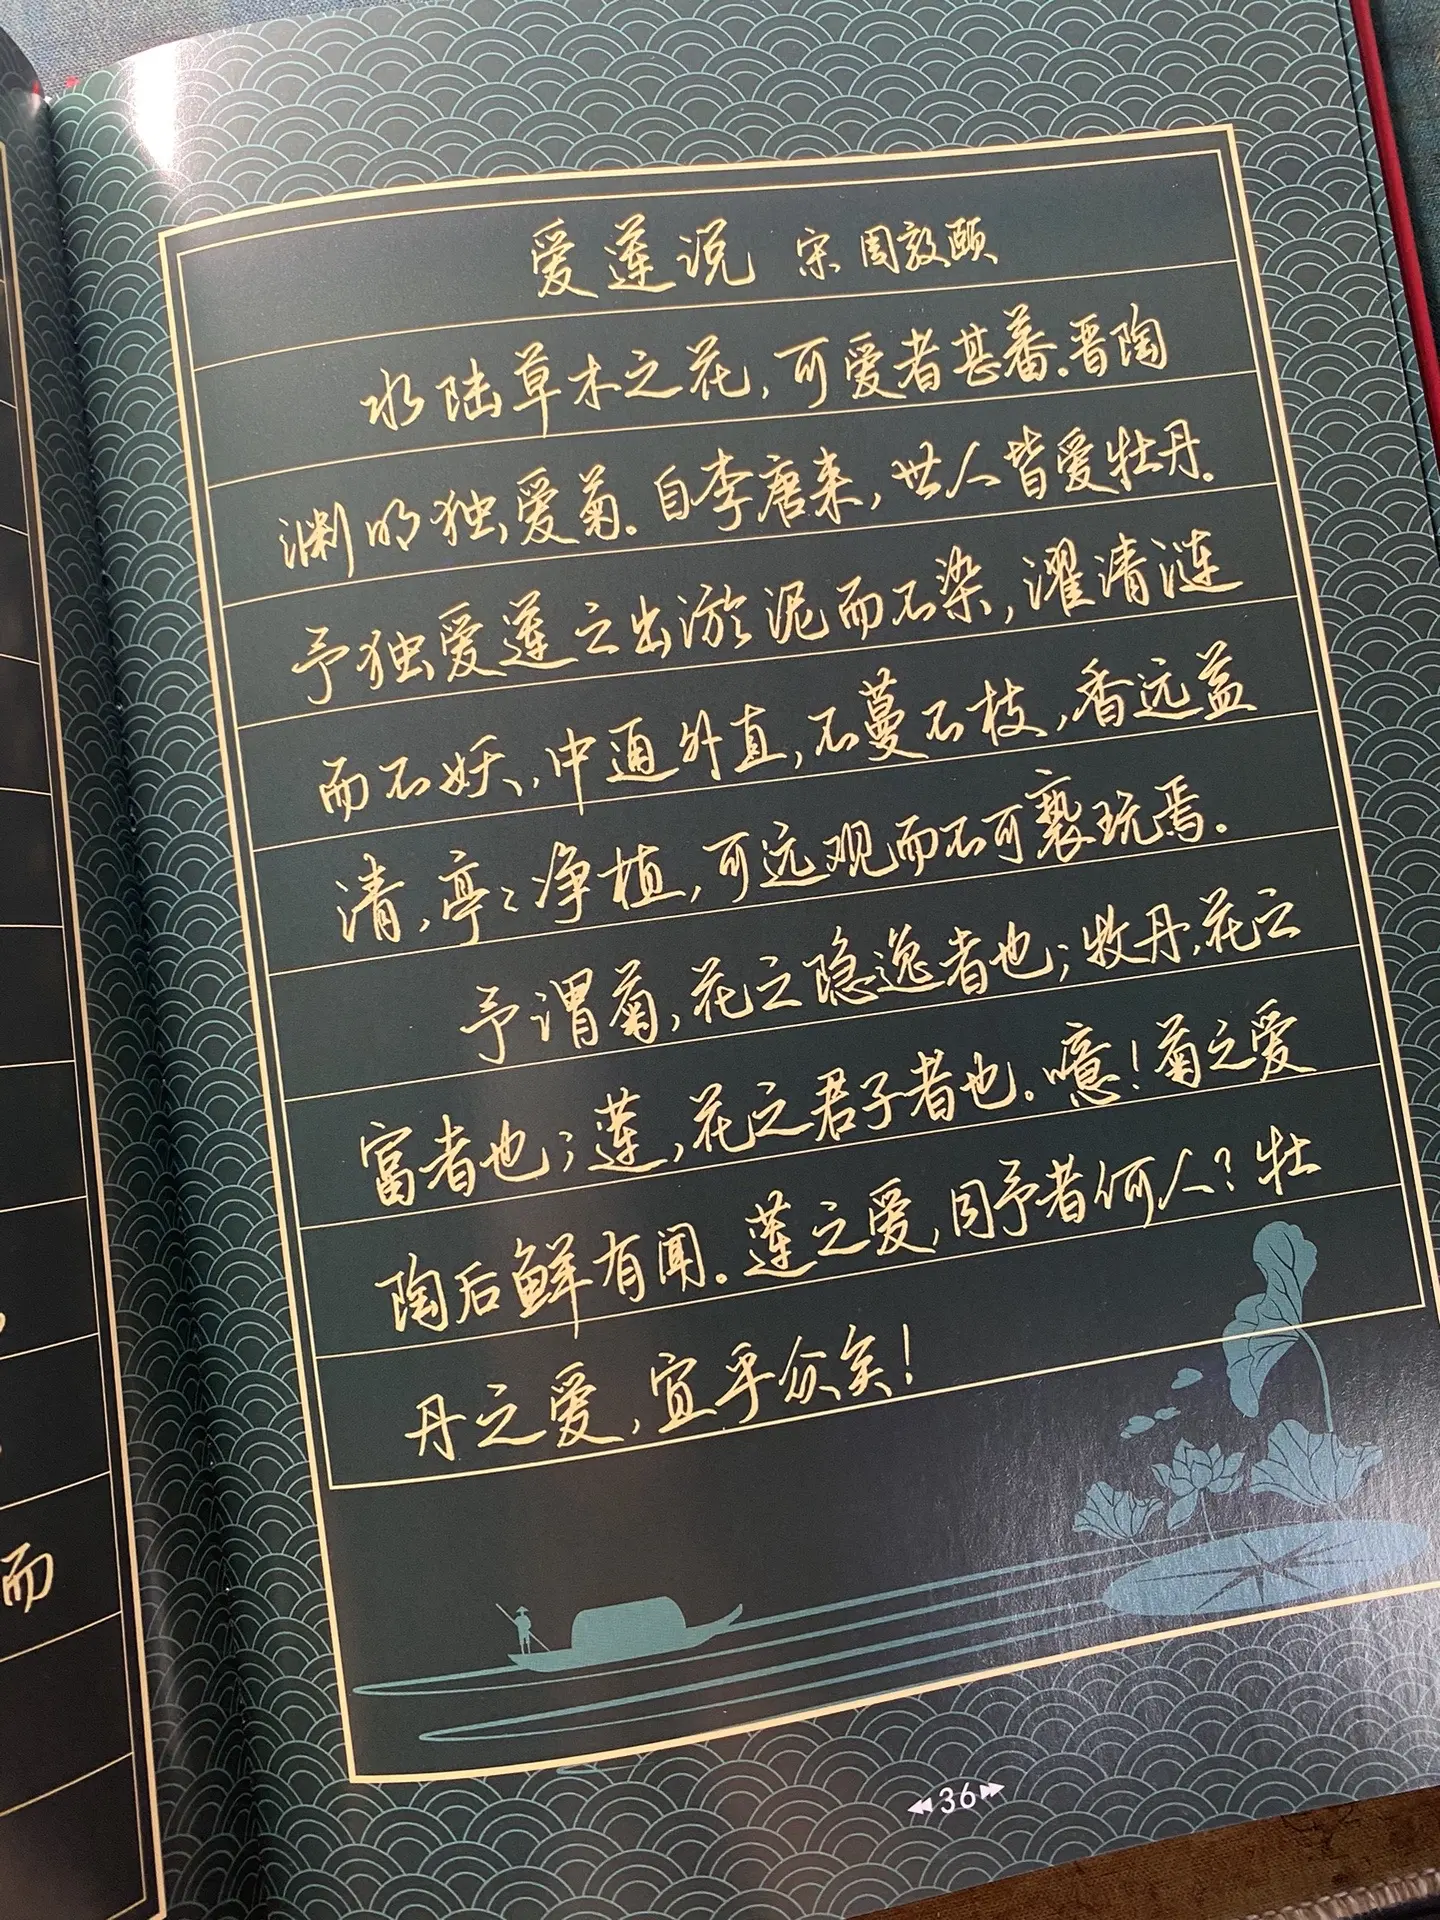 而
爱莲说 宋 周敦颐
水陆草木之花，可爱者甚蕃。晋陶
渊明独爱菊。自李唐来，世人皆爱牡丹。
予独爱莲之出淤泥而不染，濯清涟
而不妖，中通外直，不蔓不枝，香远益
清，亭々净植，可远观而不可亵玩焉。
予谓菊，花之隐逸者也；牧丹，花之
富者也；莲，花之君子者也。噫！菊之爱
陶后鲜有闻。莲之爱，同予者何人？牡
丹之爱，宜乎众矣！
36